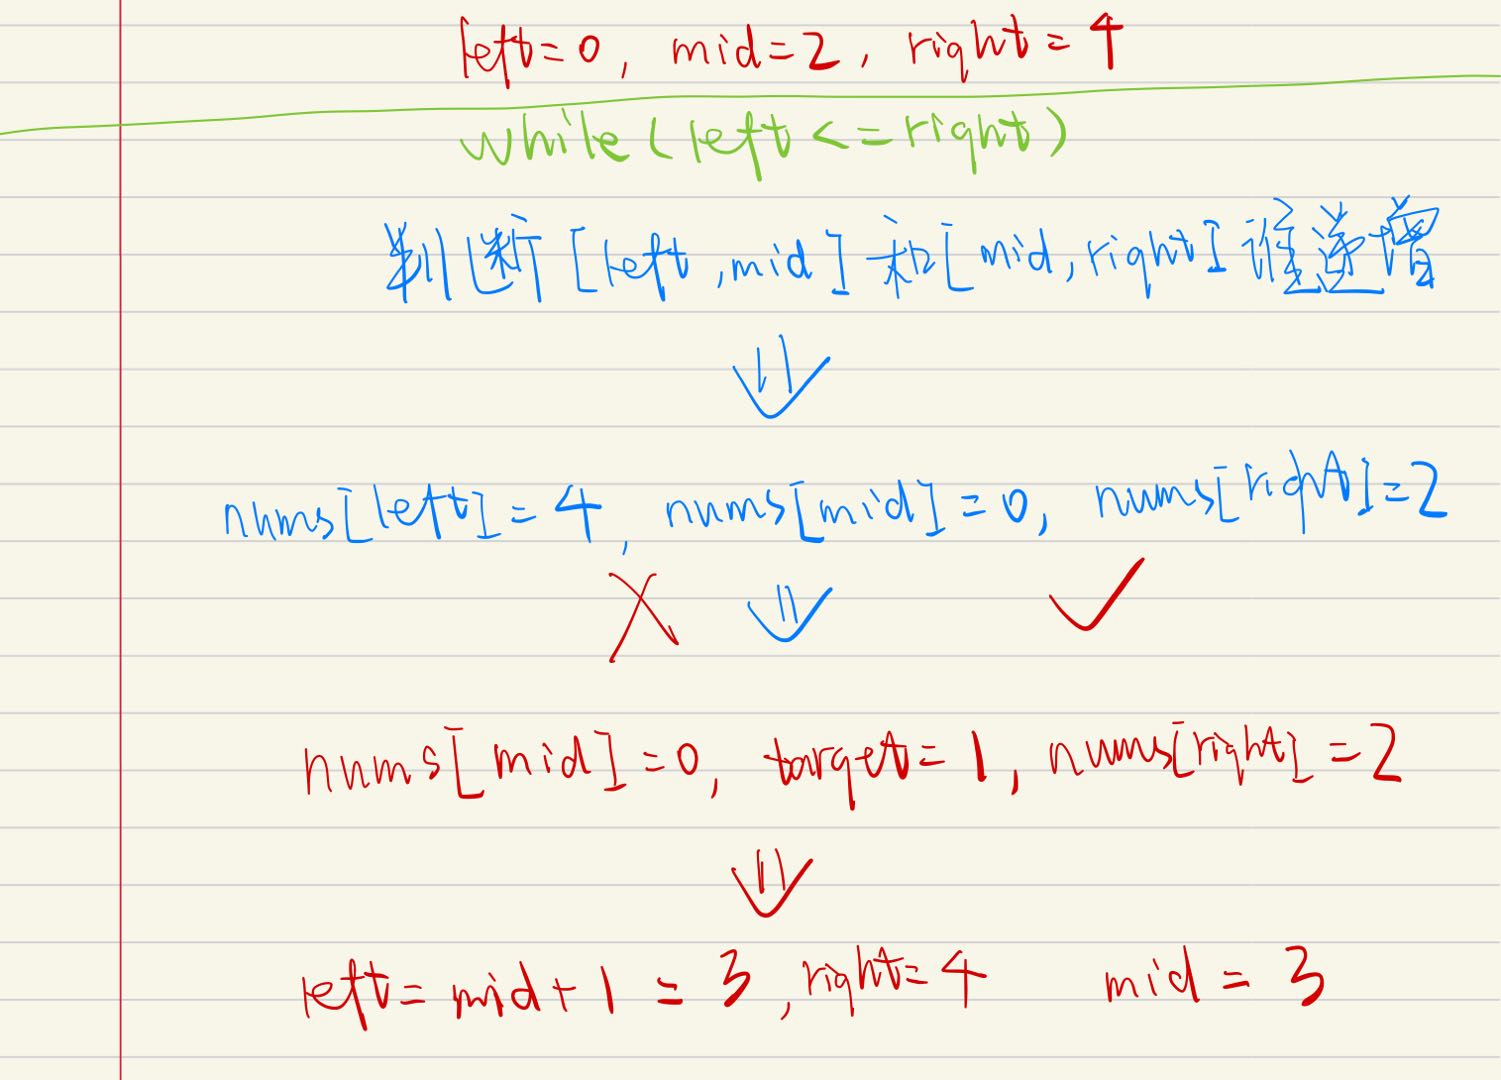 left=0, mid=2, right=4
while(left<=right)
判断[left,mid]和[mid,right]谁递增
nums[left]=4, nums[mid]=0, nums[right]=2
nums[mid]=0, target=1, nums[right]=2
left=mid+1=3, right=4 mid=3